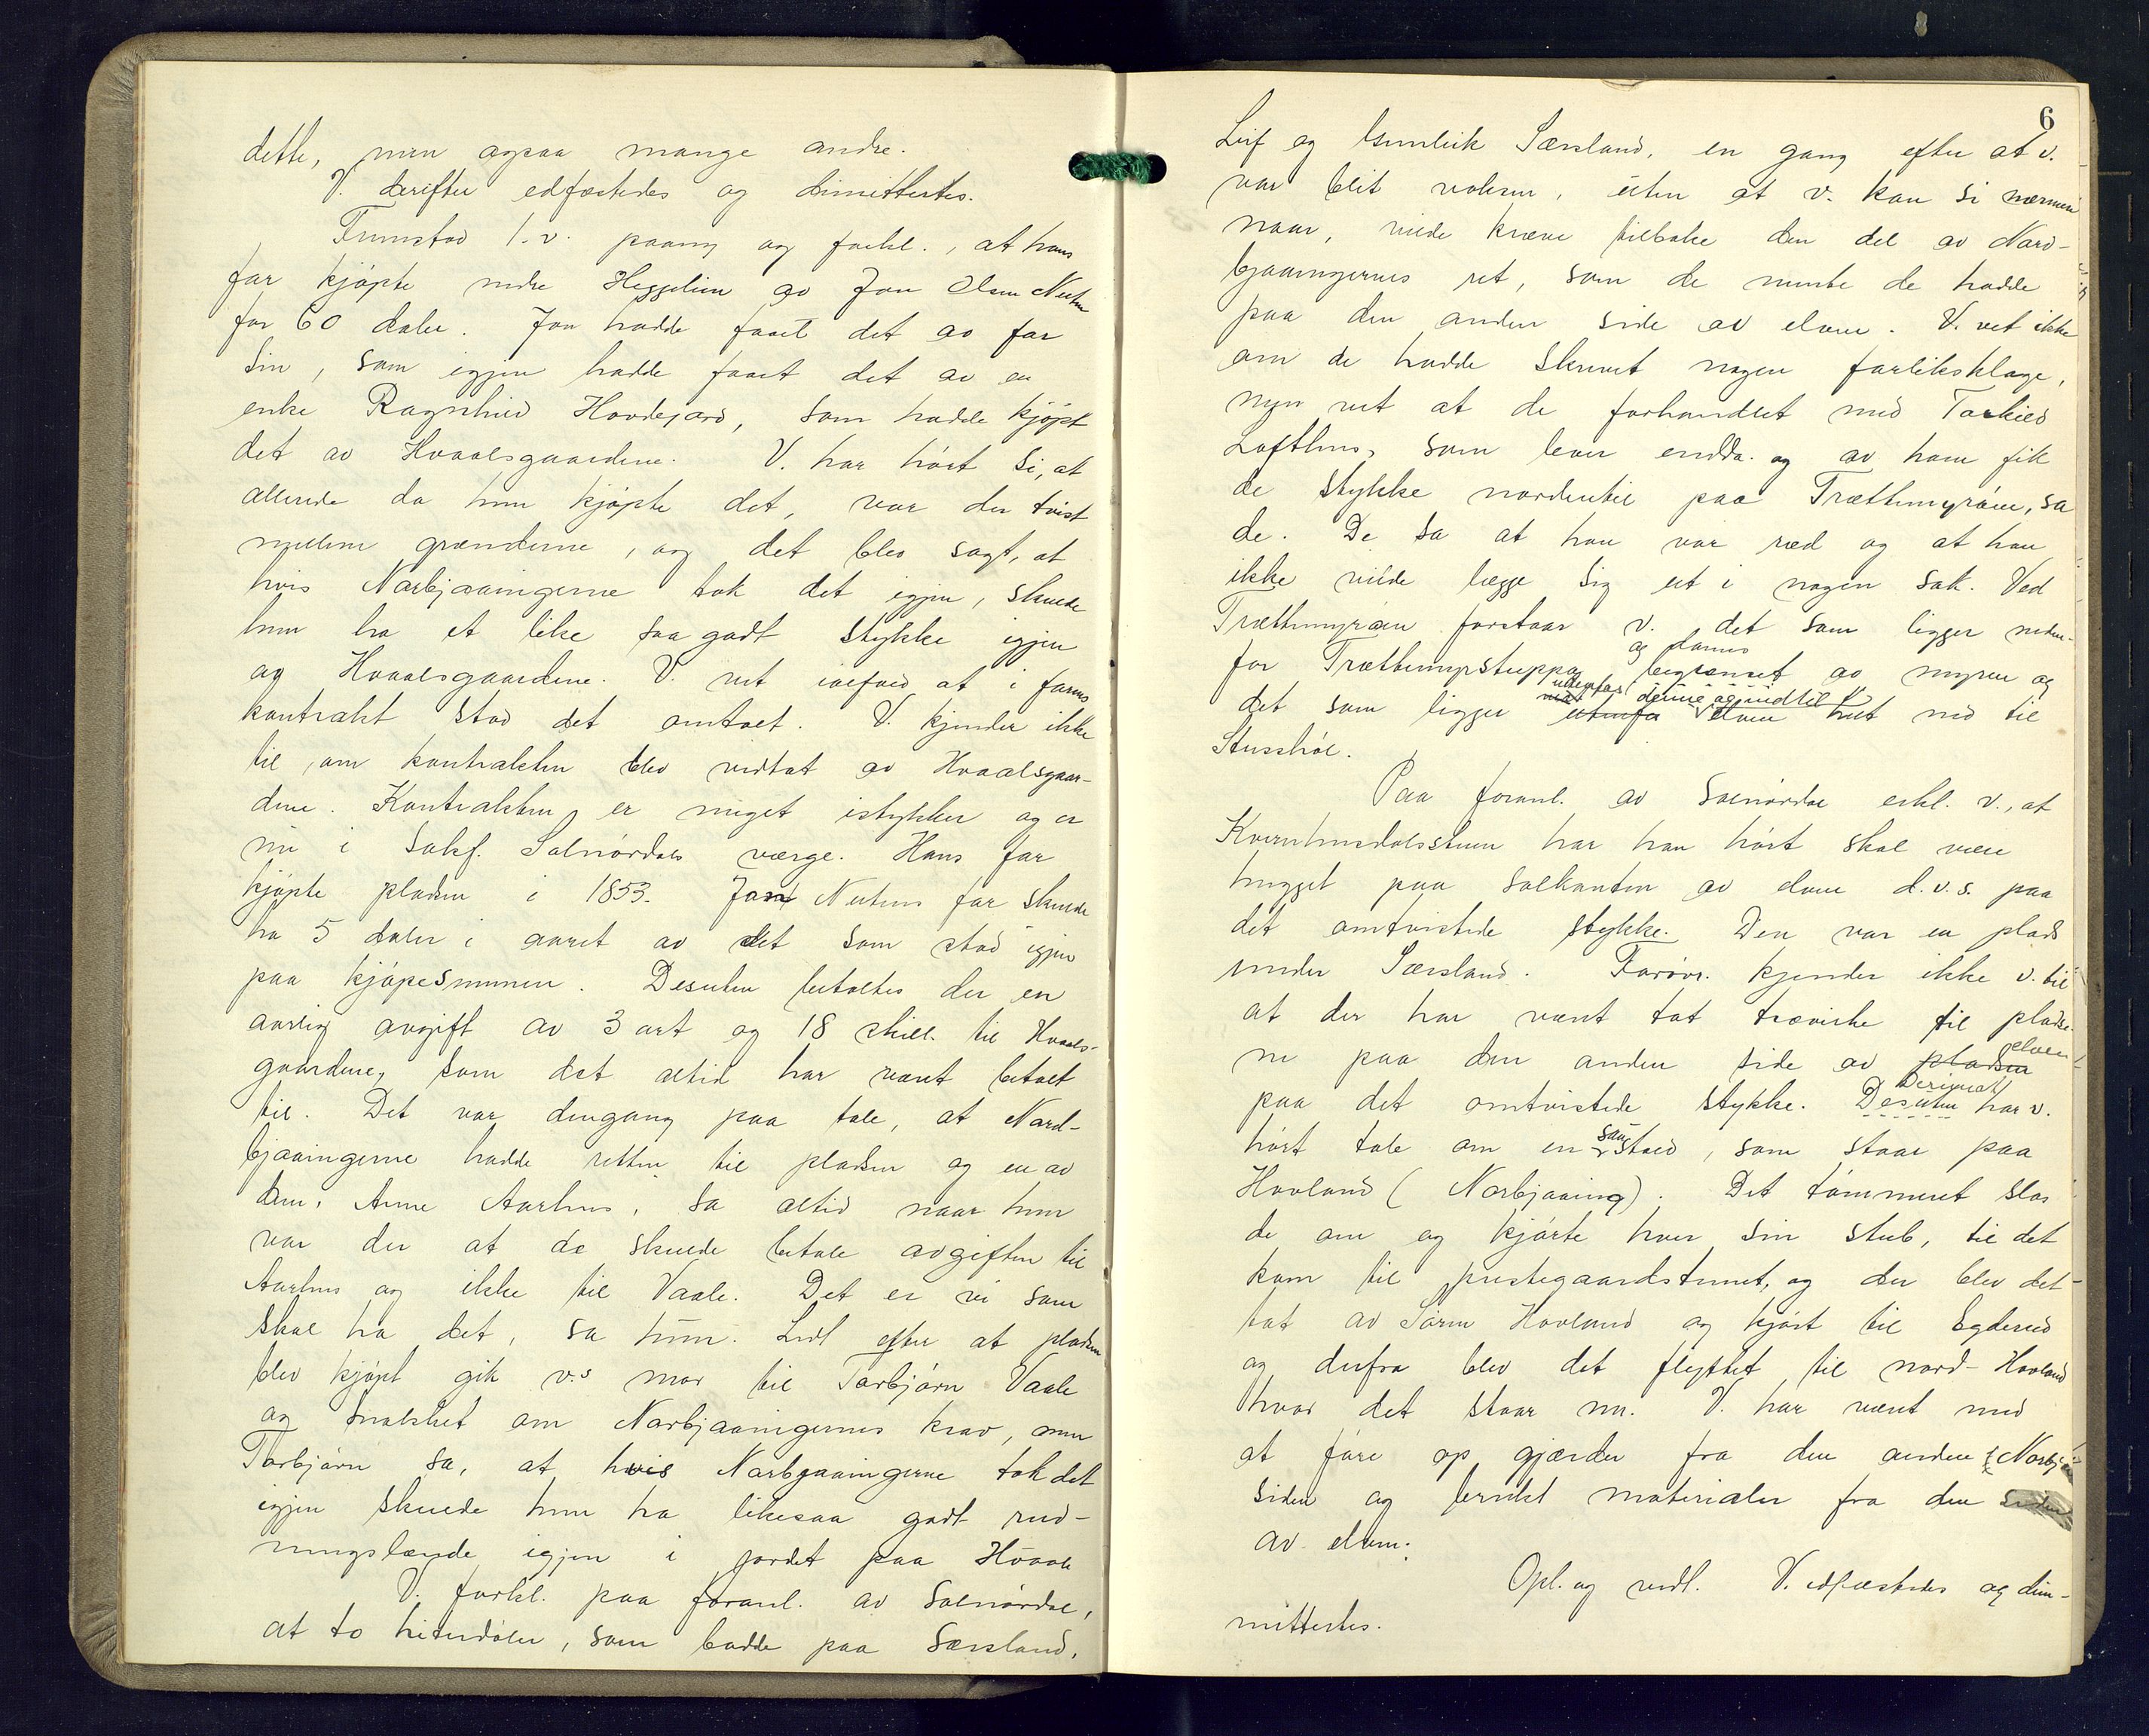 dette, men ogsaa mange andre.
V. derefter edfæstedes og dimittertes.
Fremstod 1. v. paany og forkl., at hans
far kjøpte nedre Heggelien av Jon Olsen
for 60 daler. Jon hadde faaet det av far
sin, som igjen hadde faaet det av en
enke Ragnhild Hovdejord, som hadde kjøpt
det av Hvaalsgaardene. V. har hørt si, at
allerede da hun kjøpte det, var der tvist
mellem grænderne, og det blev sagt, at
hvis Nørbjaaingerne tok det igjen, skulde
hun ha et like saa godt stykke igjen
av Hvaalsgaardene. V. vet ialfald at i farens
kontrakt stod det omtalt. V. kjender ikke
til, om kontrakten blev vedtat av Hvaalsgaar-
dene. Kontrakten er meget istykker og er
nu i Sakf. Solnørdals værge. Hans far
kjøpte pladsen i 1853. Jons far skulde
ha 5 daler i aaret av det som stod igjen
paa kjøpesummen. Desuten betaltes der en
aarlig avgift av 3 ort og 18 skill. til Hvaals-
gaardene, som det altid har været betalt
til. Det var dengang paa tale, at Nord-
bjaaingerne hadde retten til pladsen og en av
dem, Anne Aarhus, sa altid naar hun
var der at de skulde betale avgiften til
Aarhus og ikke til Vaale. Det er vi som
skal ha det, sa hun. Litt efter at pladsen
blev kjøpt gik v.s mor til Torbjørn Vaale
og snakket om Nørbjaaingernes krav, men
Torbjørn sa, at hvis Nørbjaaingerne tok det
igjen skulde hun ha likesaa godt rud-
ningslænde igjen i jordet paa Hvaale
V. forkl. paa foranl. av Solnørdal,
at to hiterdøler, som bodde paa Særsland,
6
Leif og Gunleik Særsland, en gang efter at v.
var blit voksen, uten at v. kan si nærmere
naar, vilde kræve tilbake den del av Nord-
bjaaingernes ret, som de mente de hadde
paa den anden side av elven. V. vet ikke
om de hadde skrevet nogen forliksklage,
men vet at de forhandlet med Torkild
Lofthus, som lever endda og av ham fik
de stykke nordentil paa Trættemyrøen, sa
de. De sa at han var ræd og at han
ikke vilde lægge sig ut i nogen sak. Ved
Trættemyrøen forstaar v. det som ligger neden-
for Trættemyrstuppa og dannes begrænset av myren og
det som ligger utenfor denne og indtil elven ned til
Stusshøl.
Paa foranl. av Solnørdal erkl. v., at
Kvernhusdalsstuen har han hørt skal være
hugget paa solkanten av elven d.v.s. paa
det omtvistede stykke. Den var en plads
under Særsland. Forøvr. kjender ikke v. til
at der har været tat trævirke til pladse-
ne paa den anden side av pladsen elven
paa det omtvistede stykke. Desuten Derimot har v.
hørt tale om en stald, som staar paa
Hovland (Nørbjaaing). Det tømmeret slos
de om og kjørte hver sin stub, til det
kom til prestegaardstunet, og der blev det
tat av Søren Hovland og kjørt til Egderud
og derfra blev det flyttet til nord-Hovland
hvor det staar nu. V. har været med
at føre op gjærder fra den anden
siden og brukt materialer fra den siden
av elven.
Opl. og vedt. V. edfæstedes og dim-
mittertes.